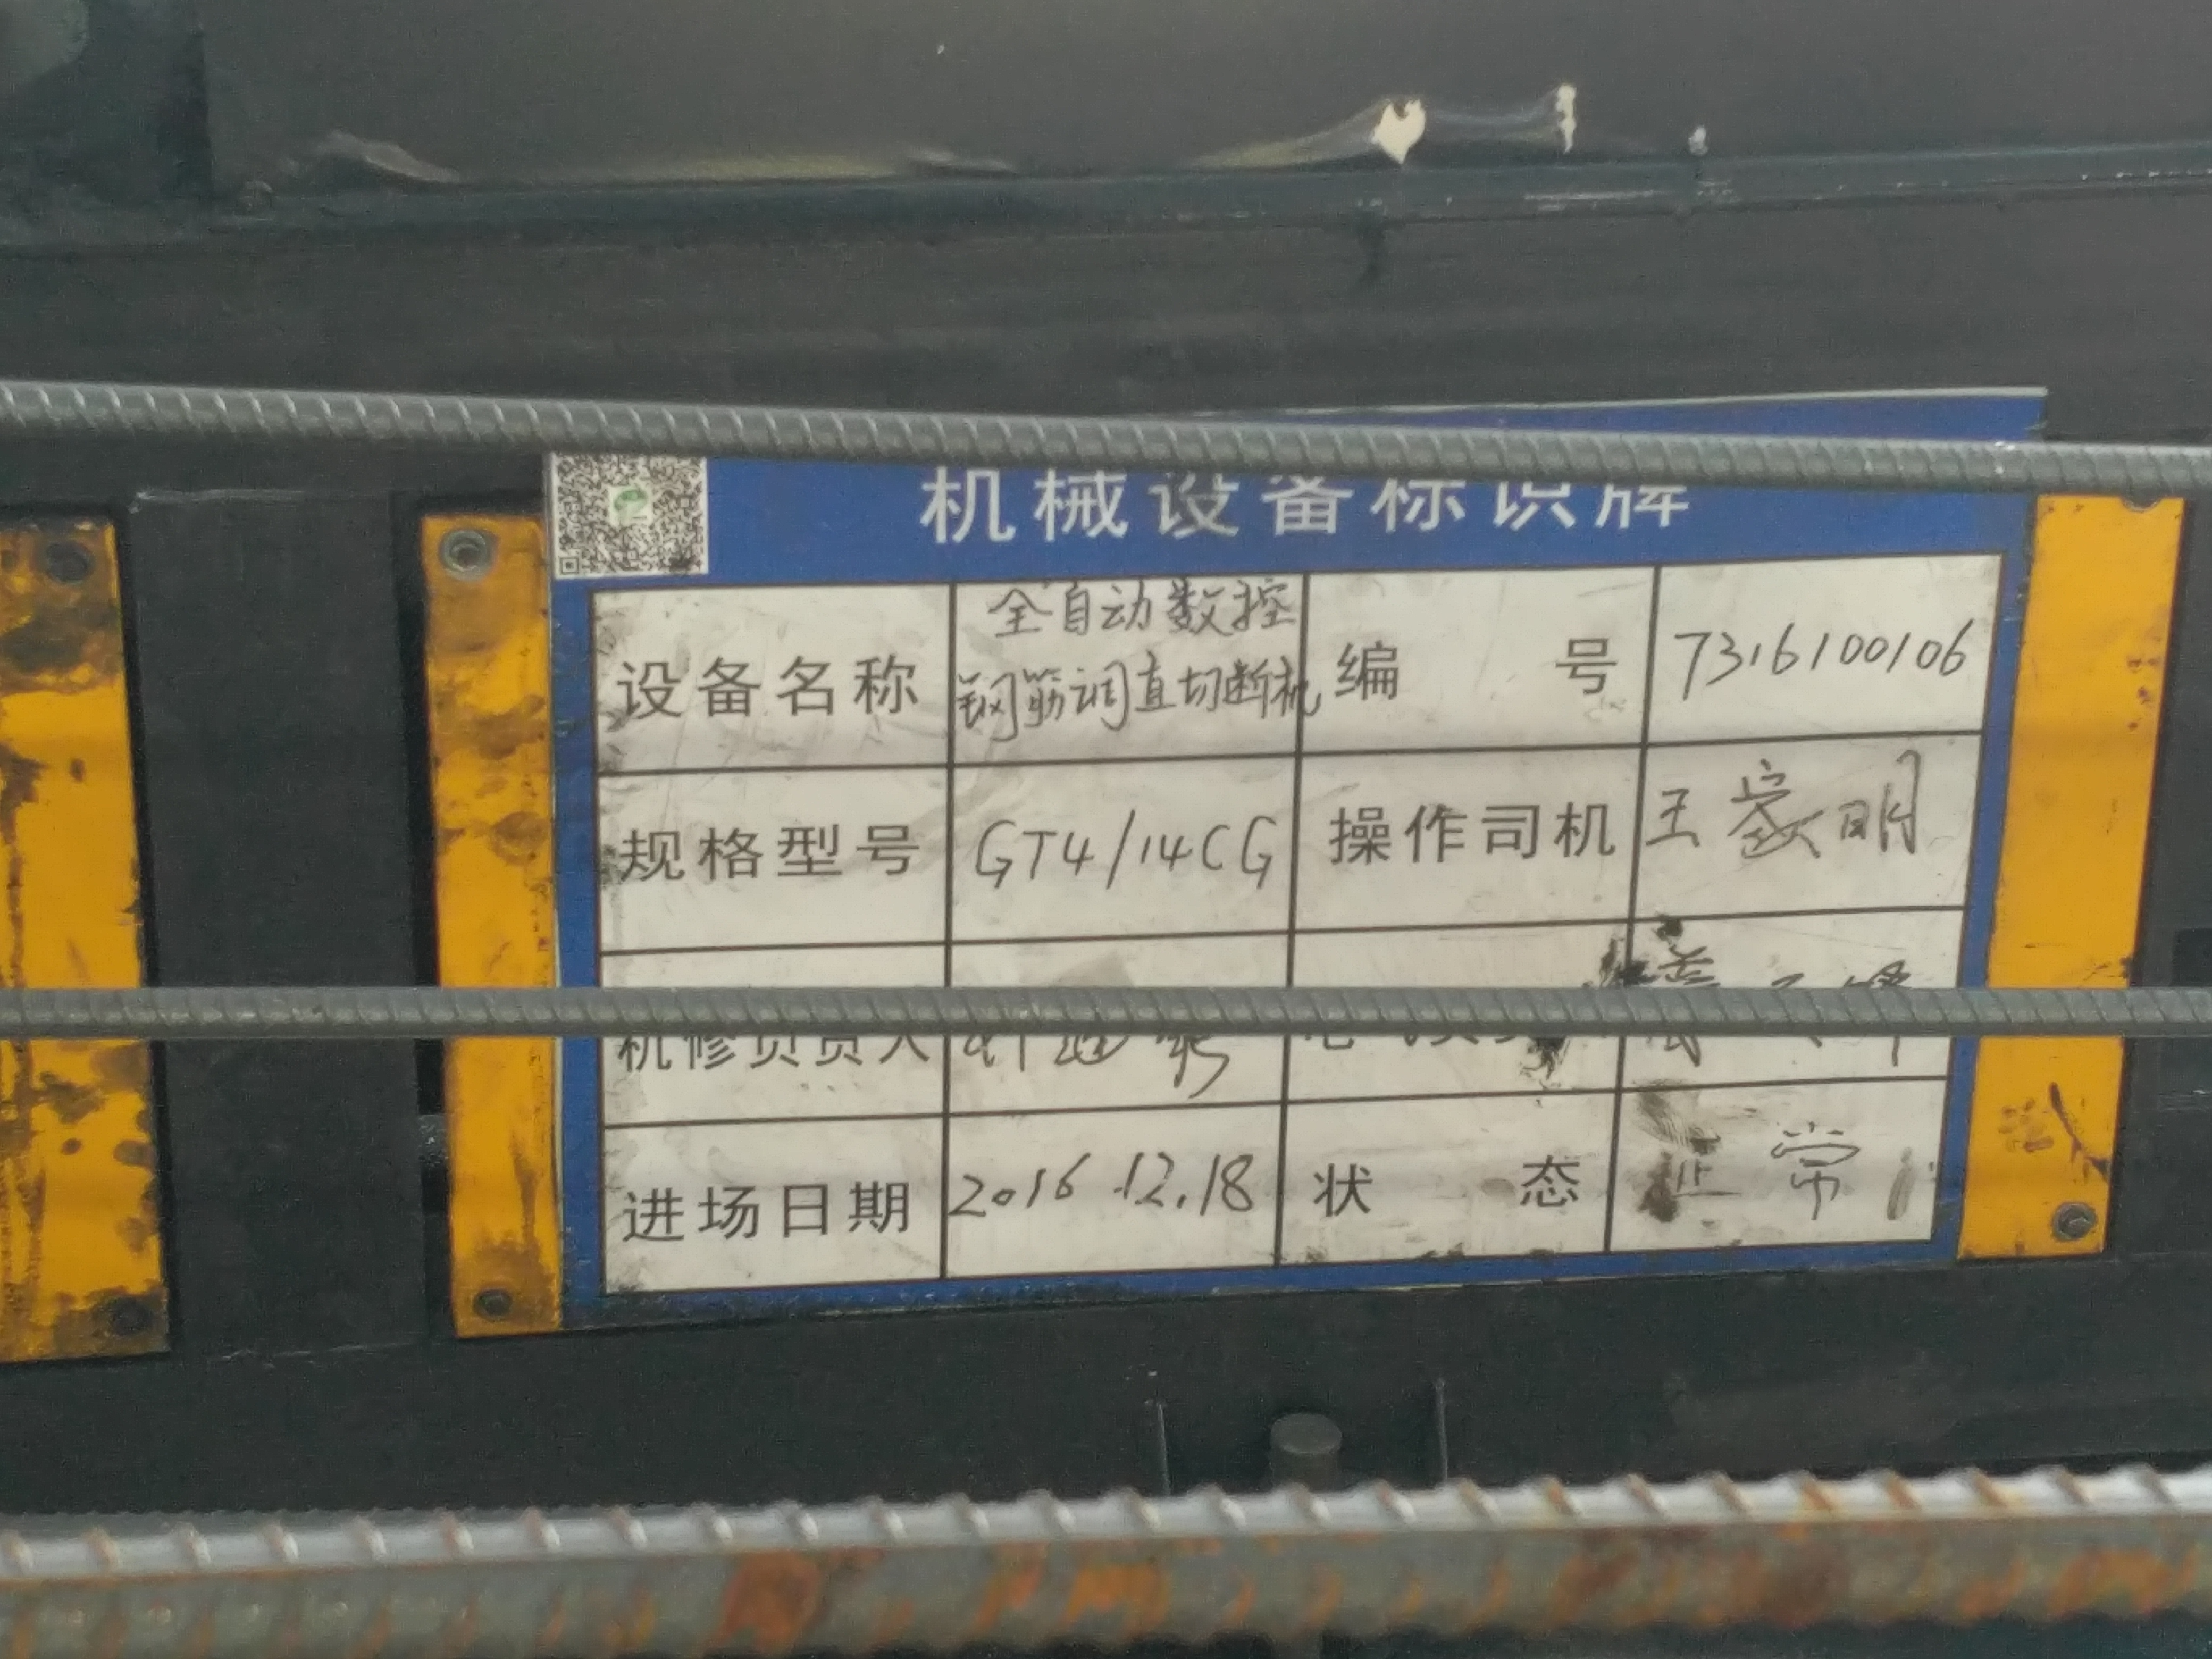 机械设备标识牌
设备名称 全自动数控 编号 7316100106
钢筋调直切断机
规格型号 GT4/14CG 操作司机 王家明
机修负责人
进场日期 2016.12.18 状态 正常